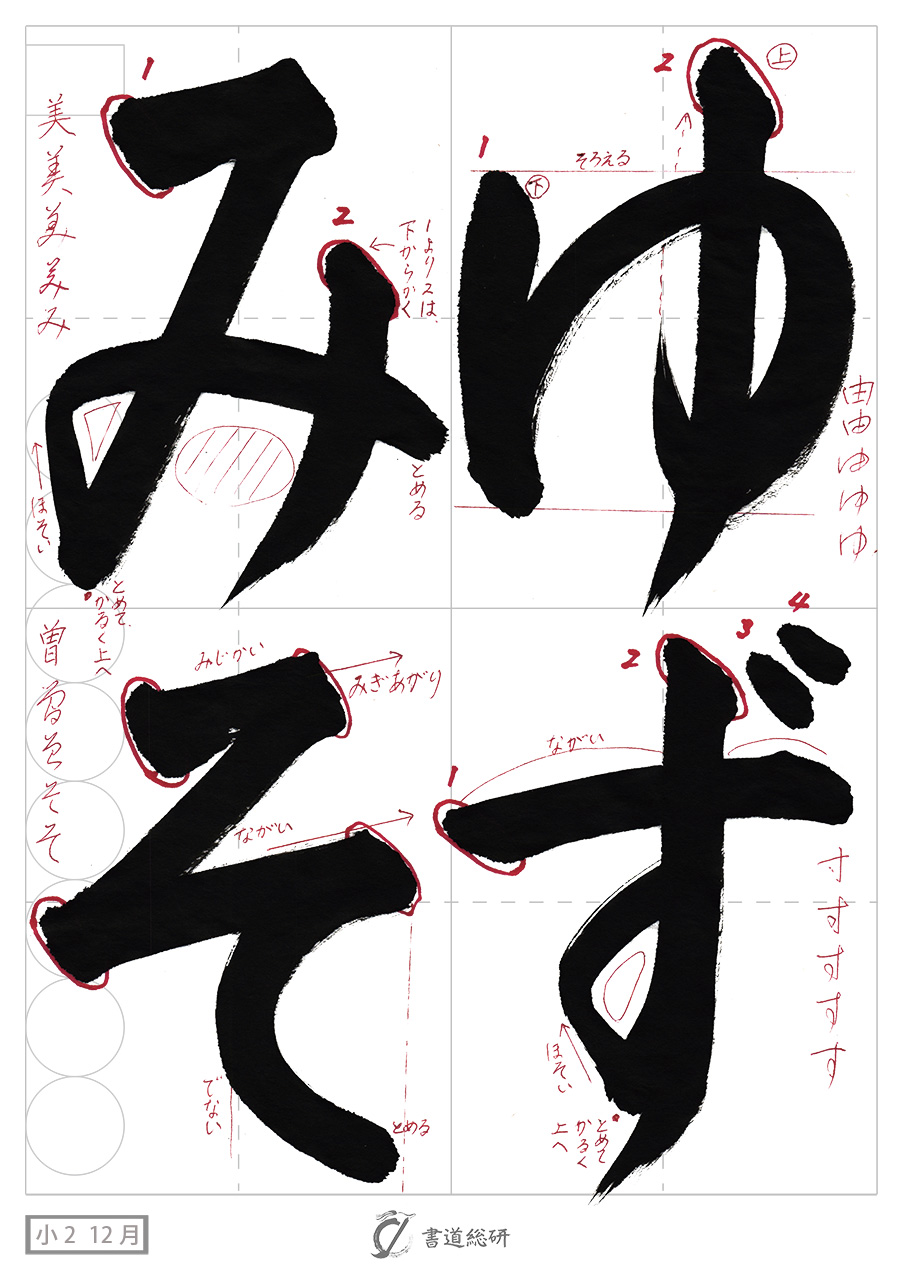 ゆず
みそ
1
2
上
下
そろえる
由由ゆゆゆ
1
2
3
4
ながい
寸すすすす
ほそい
とめて
かるく
上へ
1
2
1より2は、
下からかく
美美美みみ
とめる
ほそい
とめて、
かるく上へ
みじかい
みぎあがり
ながい
曽曽そそそ
でない
とめる
小2 12月
書道総研